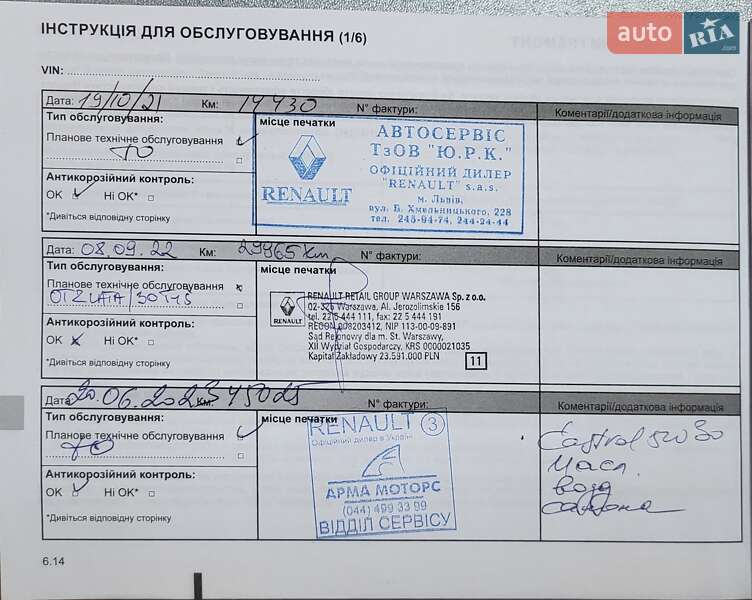 ІНСТРУКЦІЯ ДЛЯ ОБСЛУГОВУВАННЯ (1/6)
auto RIA.com
VIN:
Дата: 19/10/21 Км: 14430 N° фактури:
Коментарі/додаткова інформація
Тип обслуговування:
місце печатки
Планове технічне обслуговування
ТО
Антикорозійний контроль:
OK Ні OK*
*Дивіться відповідну сторінку
RENAULT
АВТОСЕРВІС
ТзОВ "Ю.Р.К."
ОФІЦІЙНИЙ ДИЛЕР
"RENAULT" s.a.s.
м. Львів,
вул. Б. Хмельницького, 228
тел. 245-94-74, 244-24-44
Дата: 08.09.22 Км: 29965 km N° фактури:
Коментарі/додаткова інформація
Тип обслуговування:
місце печатки
Планове технічне обслуговування
Антикорозійний контроль:
OK Ні OK*
*Дивіться відповідну сторінку
RENAULT
RENAULT RETAIL GROUP WARSZAWA Sp. z o.o.
02-325 Warszawa, Al. Jerozolimskie 156
tel. 22 5 444 111, fax: 22 5 444 191
REGON 008203412, NIP 113-00-09-891
Sąd Rejonowy dla m. St. Warszawy,
XII Wydział Gospodarczy, KRS 0000021035
Kapitał Zakładowy 23.591.000 PLN
11
Дата 20.06.2023 Км: 45025 N° фактури:
Коментарі/додаткова інформація
Тип обслуговування:
місце печатки
Планове технічне обслуговування
ТО
Антикорозійний контроль:
OK Ні OK*
*Дивіться відповідну сторінку
RENAULT 3
Офіційний дилер в Україні
АРМА МОТОРС
(044) 499 33 99
ВІДДІЛ СЕРВІСУ
Castrol 5W30
Масл.
возд
салона
6.14